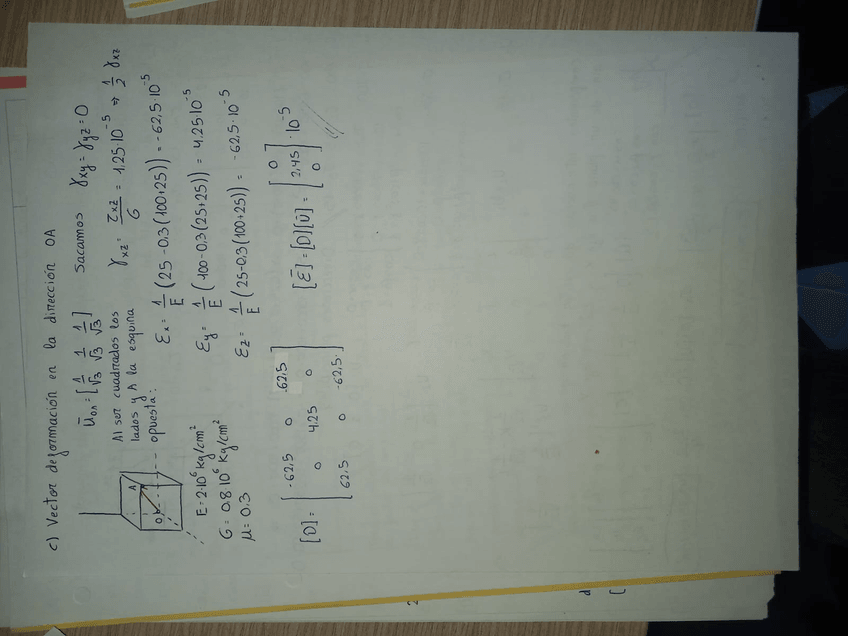 c) Vector deformación en la dirección OA
ū_OA = [1/√3 1/√3 1/√3]
Sacamos γxy = γyz = 0
Al ser cuadrados los
lados y A la esquina
opuesta:
γxz = τxz/G = 1,25·10^-5 ⇒ 1/2 γxz
A
O
E = 2·10^6 kg/cm²
G = 0,8 10^6 kg/cm²
μ = 0,3
εx = 1/E (25 - 0,3(100+25)) = -62,5·10^-5
εy = 1/E (100 - 0,3(25+25)) = 4,25·10^-5
εz = 1/E (25 - 0,3(100+25)) = -62,5·10^-5
[D] = [-62,5 0 62,5
0 4,25 0
62,5 0 -62,5]
[ε̄] = [D][ū] = [0
2,45
0] · 10^-5
2
d
[